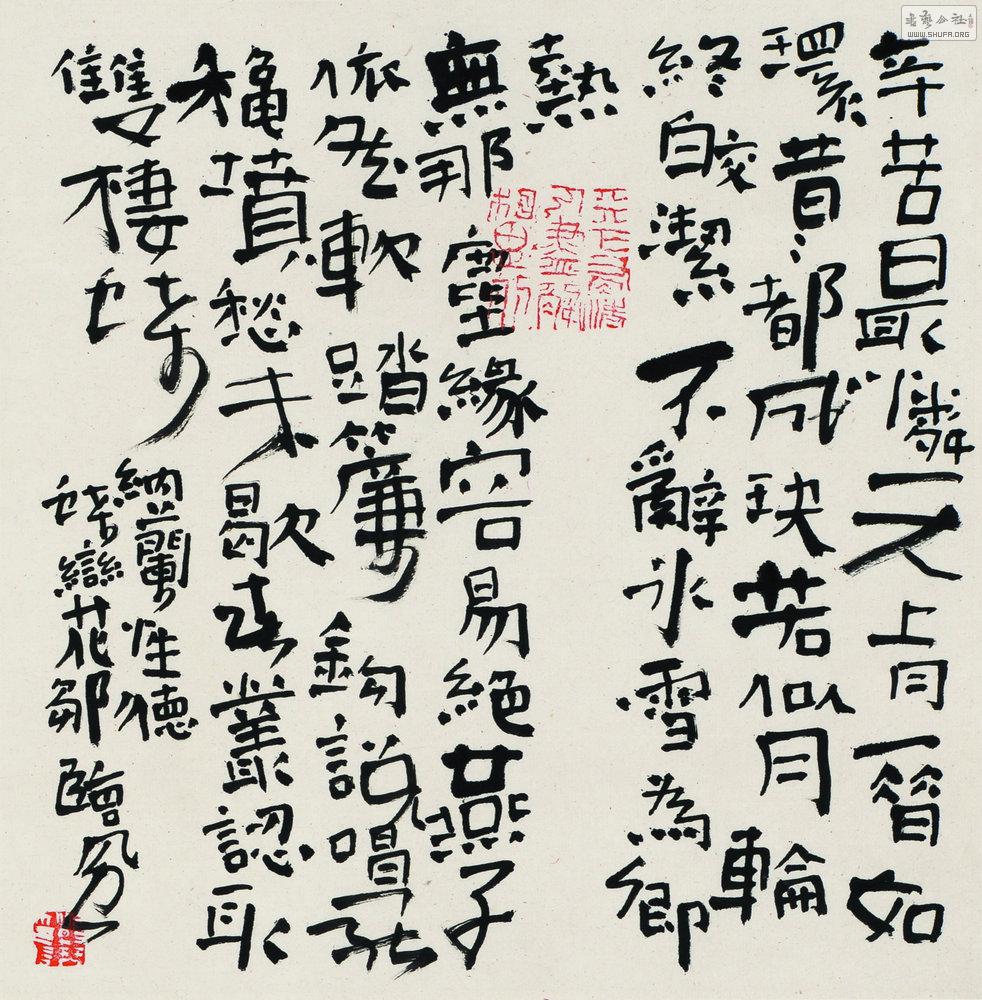 辛苦最憐天上月一昔如
環昔〻都成玦若似月輪
終皎潔不辭冰雪為卿
熱
無那塵緣容易絕燕子
依然軟踏簾鉤說唱罷
穐墳愁未歇春叢認取
雙棲蝶
納蘭性德
蝶戀花鄒
書藝公社
WWW.SHUFA.ORG